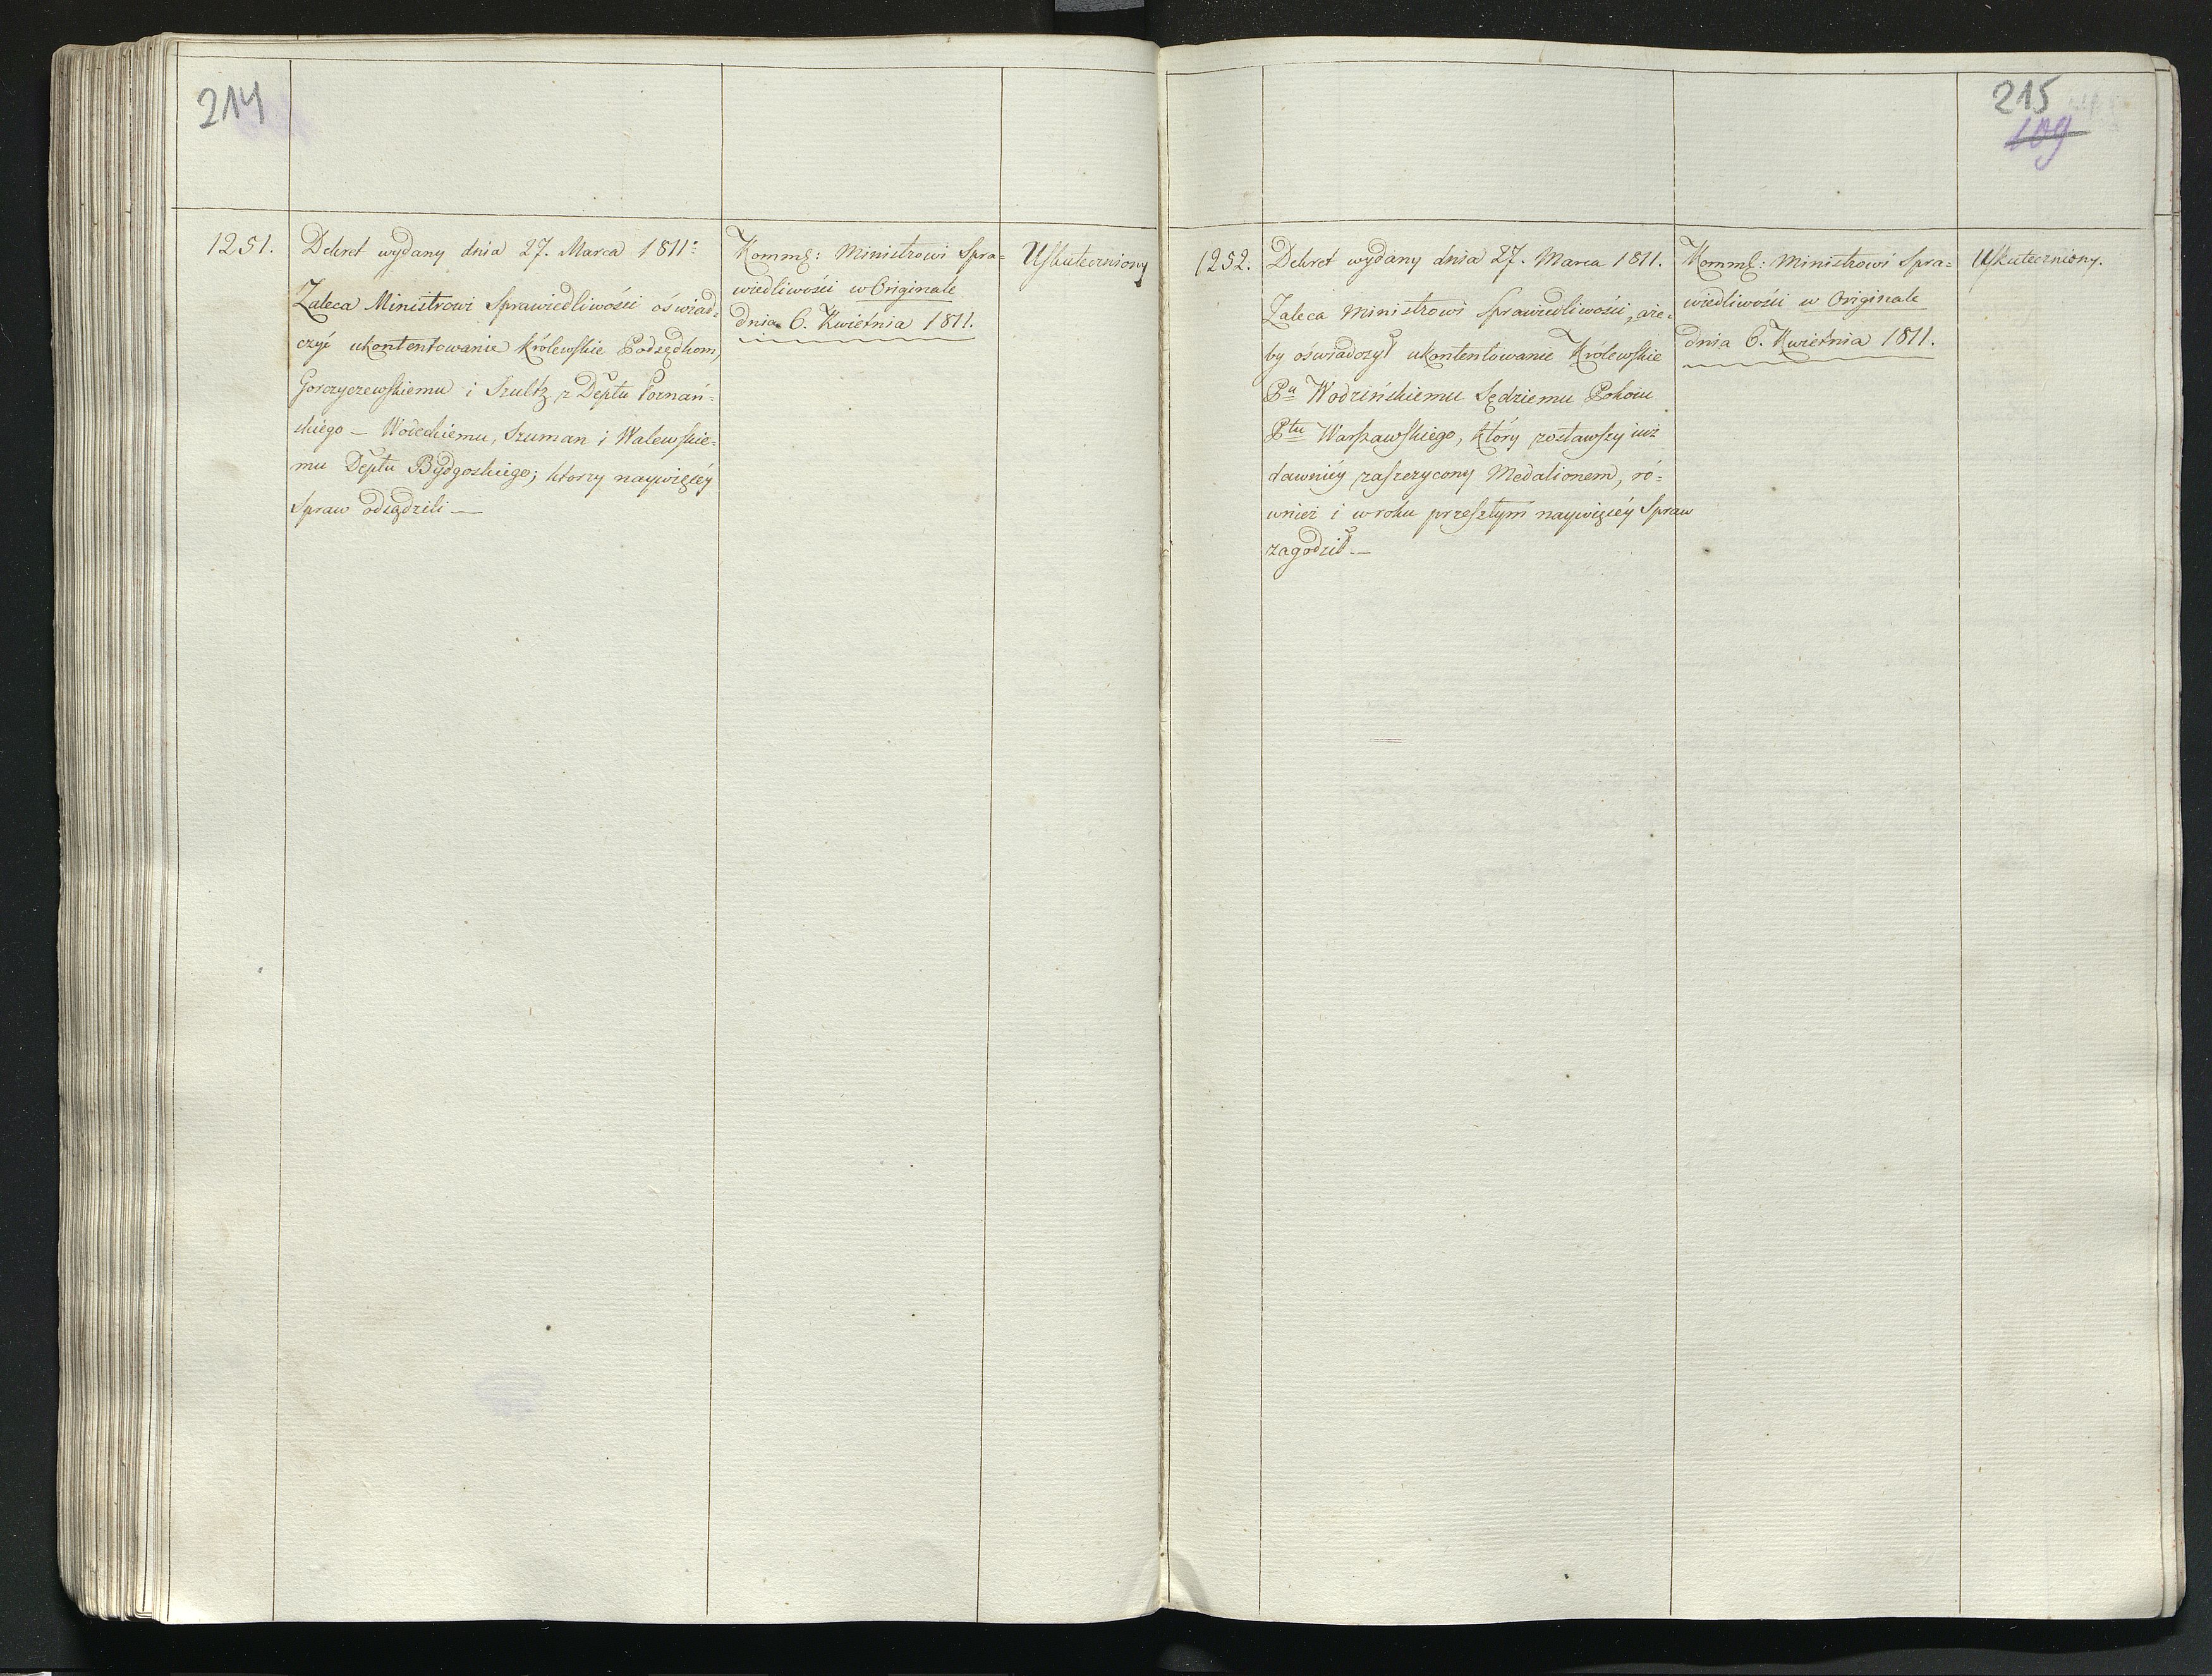 214
1251.
Dekret wydany dnia 27. Marca 1811.
Zaleca Ministrowi Sprawiedliwości oświad=
czyć ukontentowanie Królewskie Podsędkom,
Gorczyczewskiemu i Szultz z Deptu Poznań=
skiego — Wodeckiemu, Szuman i Walewskie=
mu Deptu Bydgoskiego; ktorzy naywięcéy
Spraw odsądzili —
Kommt: Ministrowi Spra=
wiedliwości w Originale
dnia 6. Kwietnia 1811.
Uskuteczniony
215
109
1252.
Dekret wydany dnia 27. Marca 1811.
Zaleca Ministrowi Sprawiedliwości, aże=
by oświadczył ukontentowanie Królewskie
Pu Wodzińskiemu Sędziemu Pokoiu
Ptu Warszawskiego, który zostawszy iuż
dawniéy zaszczycony Medalionem, ró=
wnież i w roku przeszłym naywięcéy Spraw
zagodził —
Kommt: Ministrowi Spra=
wiedliwości w Originale
dnia 6. Kwietnia 1811.
Uskuteczniony.